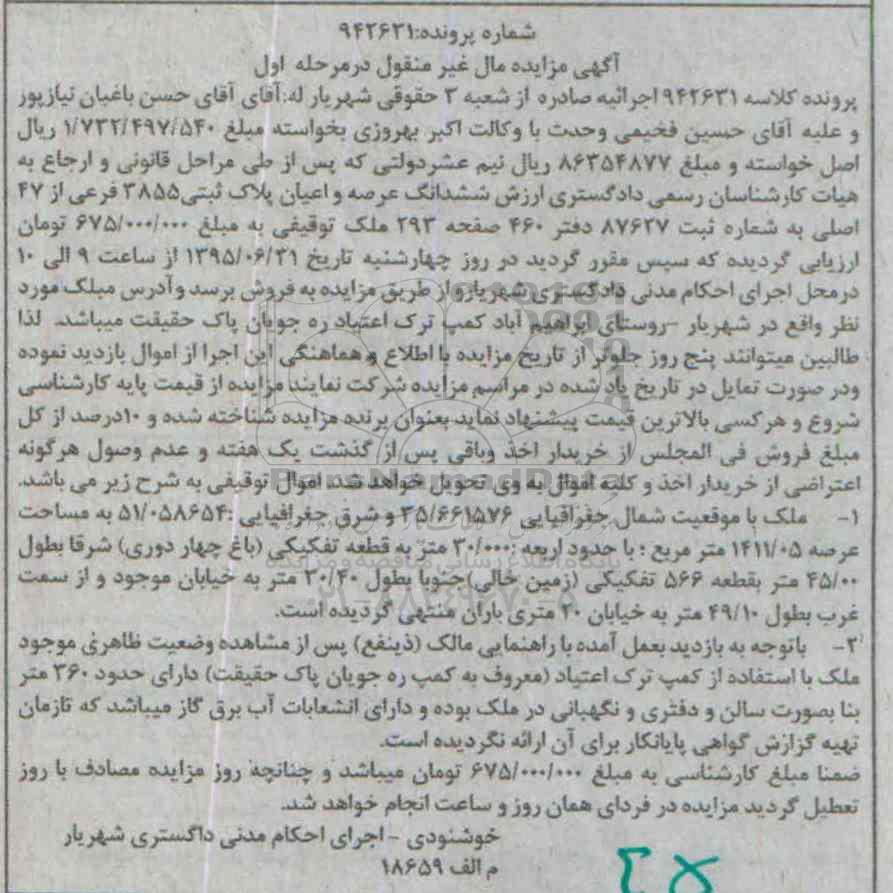 شماره پرونده:۹۴۲۶۳۱
آگهی مزایده مال غیر منقول درمرحله اول
پرونده کلاسه ۹۴۲۶۳۱اجرائیه صادره از شعبه ۳ حقوقی شهریار له:آقای آقای حسن باغبان نیازپور
و علیه آقای حسین فخیمی وحدت با وکالت اکبر بهروزی بخواسته مبلغ ۱/۷۳۲/۴۹۷/۵۴۰ ریال
اصل خواسته و مبلغ ۸۶۳۵۴۸۷۷ ریال نیم عشردولتی که پس از طی مراحل قانونی و ارجاع به
هیات کارشناسان رسمی دادگستری ارزش ششدانگ عرصه و اعیان پلاک ثبتی۳۸۵۵ فرعی از ۴۷
اصلی به شماره ثبت ۸۷۶۲۷ دفتر ۴۶۰ صفحه ۲۹۳ ملک توقیفی به مبلغ ۶۷۵/۰۰۰/۰۰۰ تومان
ارزیابی گردیده که سپس مقرر گردید در روز چهارشنبه تاریخ ۱۳۹۵/۰۶/۳۱ از ساعت ۹ الی ۱۰
درمحل اجرای احکام مدنی دادگستری شهریارواز طریق مزایده به فروش برسد و آدرس مبلک مورد
نظر واقع در شهریار –روستای ابراهیم آباد کمپ ترک اعتیاد ره جویان پاک حقیقت میباشد. لذا
طالبین میتوانند پنج روز جلوتر از تاریخ مزایده با اطلاع و هماهنگی این اجرا از اموال بازدید نموده
ودر صورت تمایل در تاریخ یاد شده در مراسم مزایده شرکت نمایند مزایده از قیمت پایه کارشناسی
شروع و هرکسی بالاترین قیمت پیشنهاد نماید بعنوان برنده مزایده شناخته شده و ۱۰درصد از کل
مبلغ فروش فی المجلس از خریدار اخذ وباقی پس از گذشت یک هفته و عدم وصول هرگونه
اعتراضی از خریدار اخذ و کلیه اموال به وی تحویل خواهد شد. اموال توقیفی به شرح زیر می باشد.
۱- ملک با موقعیت شمال جغرافیایی ۳۵/۶۶۱۵۷۶ و شرق جغرافیایی :۵۱/۰۵۸۶۵۴ به مساحت
عرصه ۱۴۱۱/۰۵ متر مربع ؛ با حدود اربعه :۳۰/۰۰۰ متر به قطعه تفکیکی (باغ چهار دوری) شرقا بطول
۴۵/۰۰ متر بقطعه ۵۶۶ تفکیکی (زمین خالی)جنوبا بطول ۳۰/۴۰ متر به خیابان موجود و از سمت
غرب بطول ۴۹/۱۰ متر به خیابان ۲۰ متری باران منتهی گردیده است.
۲- باتوجه به بازدید بعمل آمده با راهنمایی مالک (ذینفع) پس از مشاهده وضعیت ظاهری موجود
ملک با استفاده از کمپ ترک اعتیاد (معروف به کمپ ره جویان پاک حقیقت) دارای حدود ۳۶۰ متر
بنا بصورت سالن و دفتری و نگهبانی در ملک بوده و دارای انشعابات آب برق گاز میباشد که تازمان
تهیه گزارش گواهی پایانکار برای آن ارائه نگردیده است.
ضمنا مبلغ کارشناسی به مبلغ ۶۷۵/۰۰۰/۰۰۰ تومان میباشد و چنانچه روز مزایده مصادف با روز
تعطیل گردید مزایده در فردای همان روز و ساعت انجام خواهد شد.
خوشنودی – اجرای احکام مدنی داگستری شهریار
م الف ۱۸۶۵۹